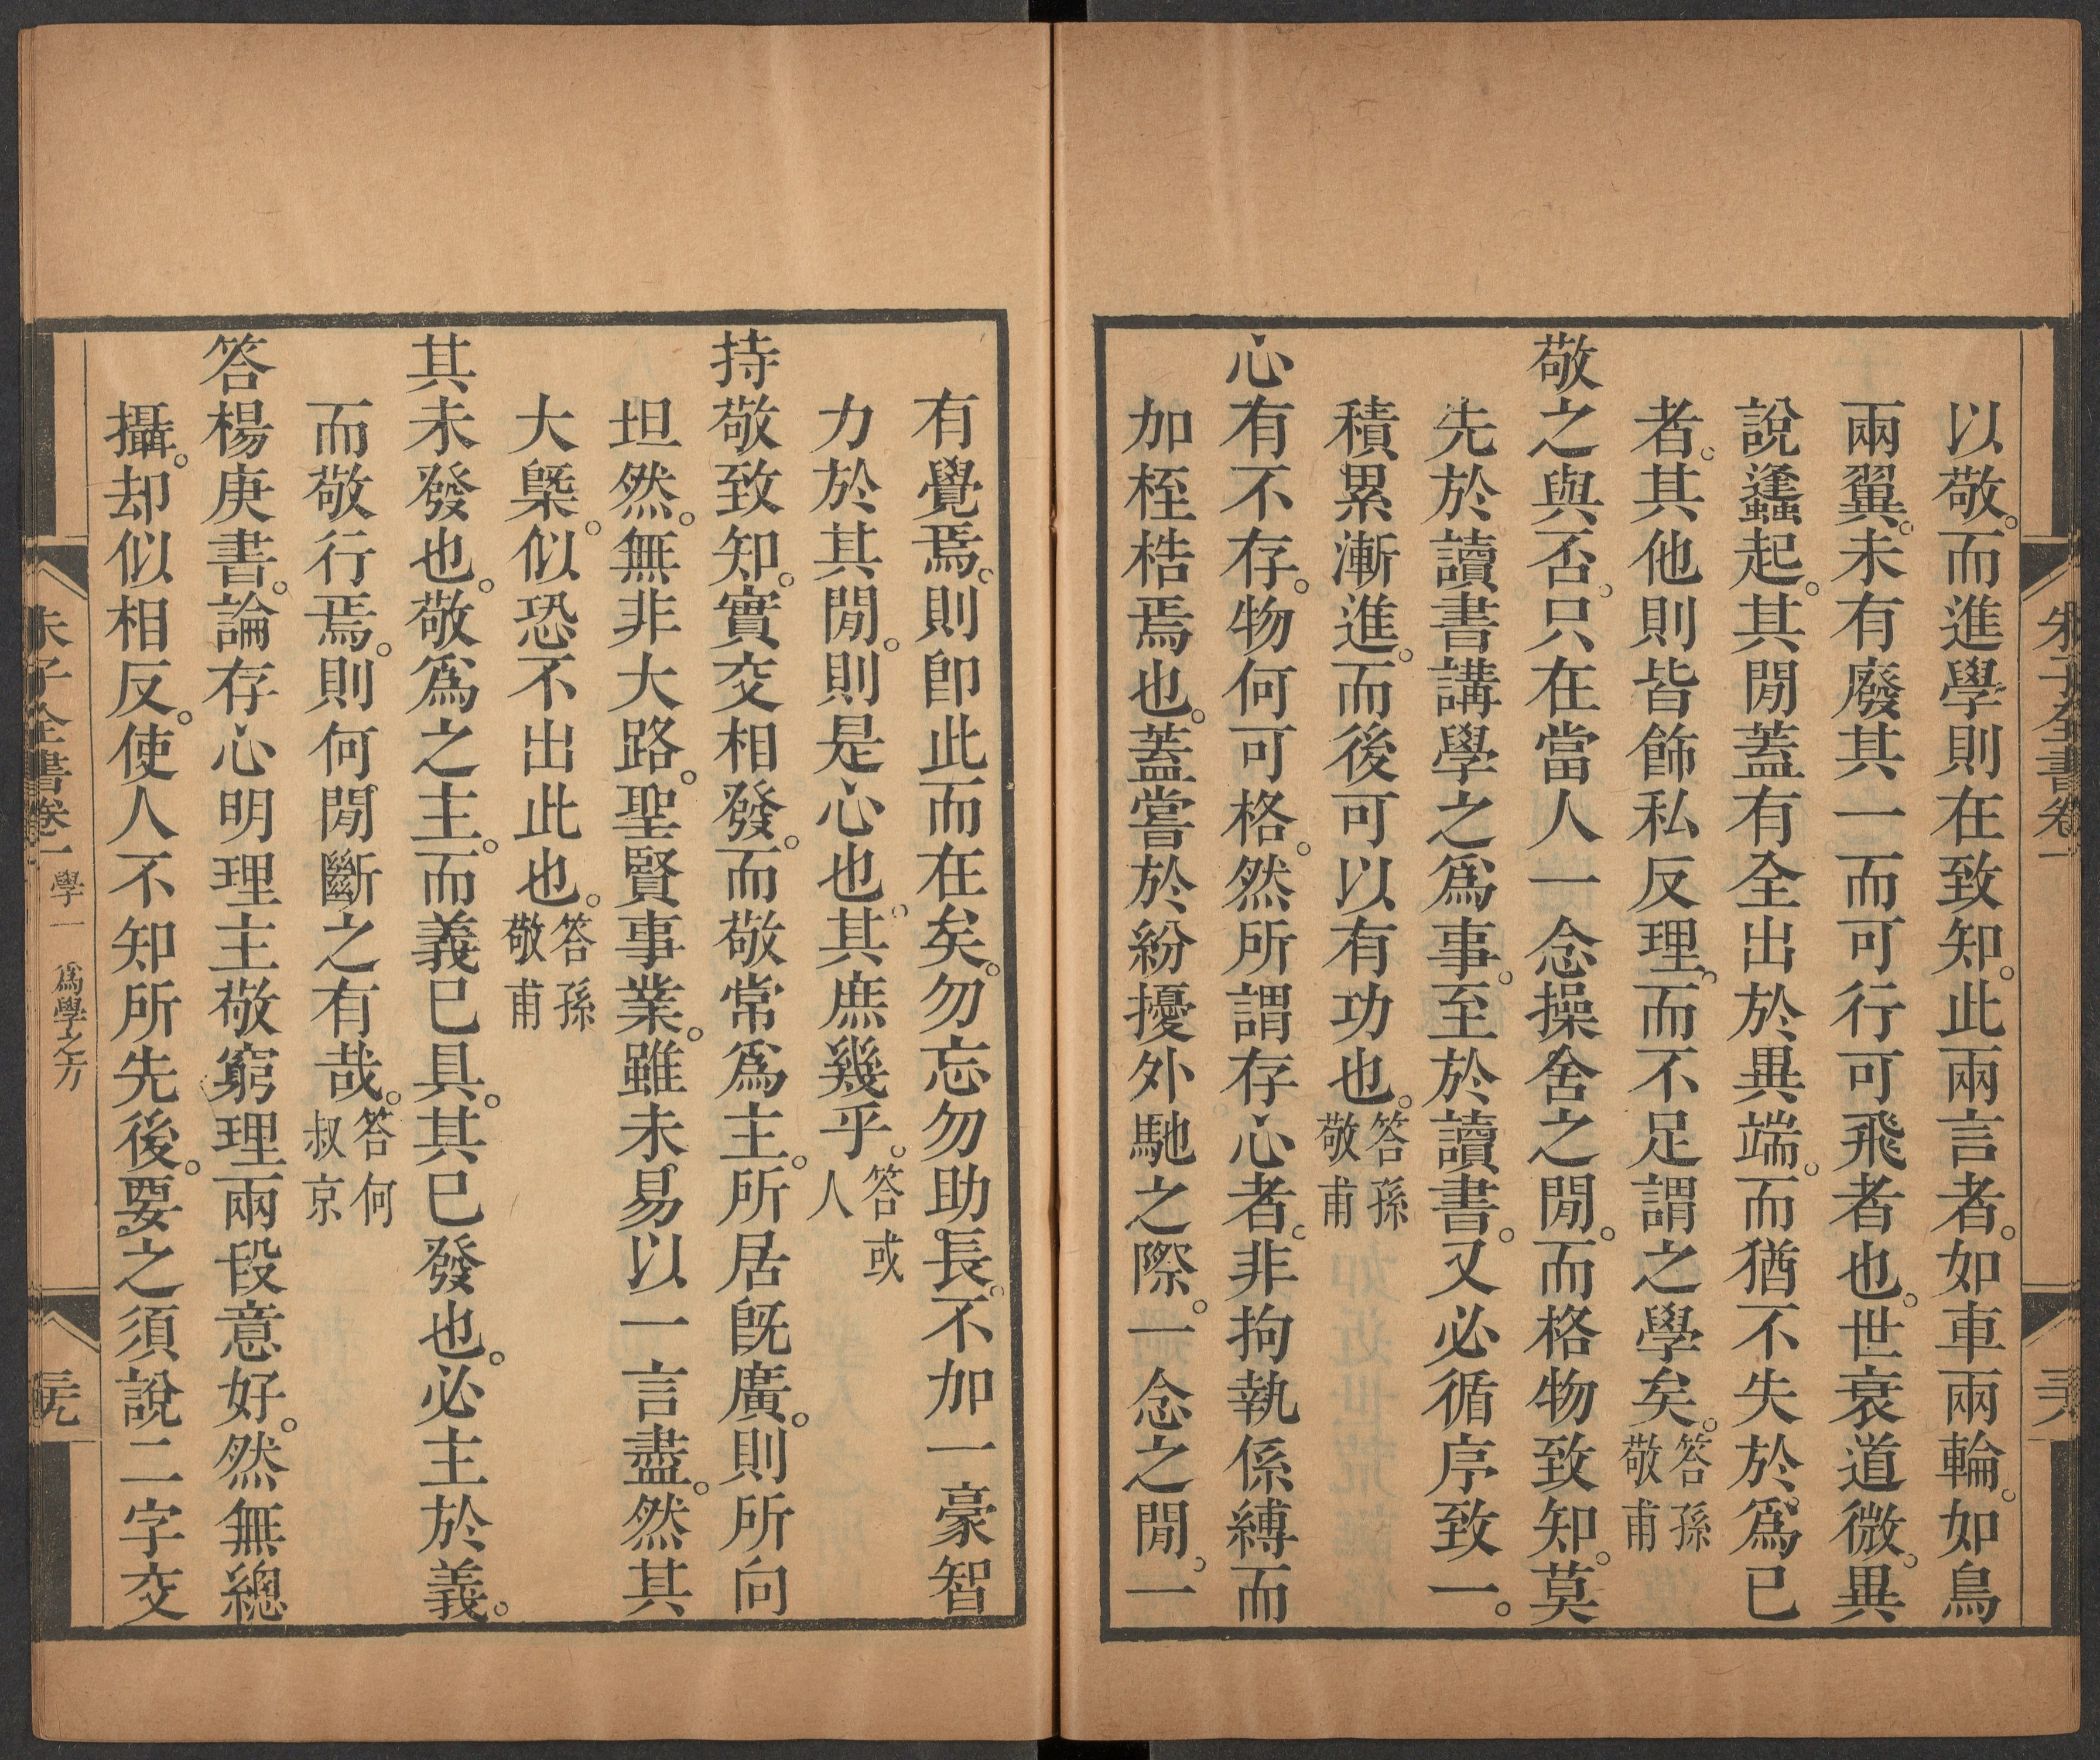 朱子全書卷一
以敬。而進學則在致知。此兩言者。如車兩輪。如鳥
兩翼。未有廢其一而可行可飛者也。世衰道微。異
說蠭起。其閒蓋有全出於異端。而猶不失於爲已
者。其他則皆飾私反理。而不足謂之學矣。答孫敬甫
敬之與否。只在當人一念操舍之閒。而格物致知。莫
先於讀書講學之爲事。至於讀書。又必循序致一。
積累漸進。而後可以有功也。答孫敬甫
心有不存。物何可格。然所謂存心者。非拘執係縛而
加桎梏焉也。蓋嘗於紛擾外馳之際。一念之閒。一
有覺焉。則卽此而在矣。勿忘勿助長。不加一豪智
力於其閒。則是心也。其庶幾乎。答或人
持敬致知。實交相發。而敬常爲主。所居旣廣。則所向
坦然。無非大路。聖賢事業。雖未易以一言盡。然其
大槩。似恐不出此也。答孫敬甫
其未發也。敬爲之主。而義已具。其已發也。必主於義。
而敬行焉。則何閒斷之有哉。答何叔京
答楊庚書。論存心明理主敬窮理兩段意好。然無總
攝。却似相反。使人不知所先後。要之須說二字交
朱子全書卷一 學一 爲學之方